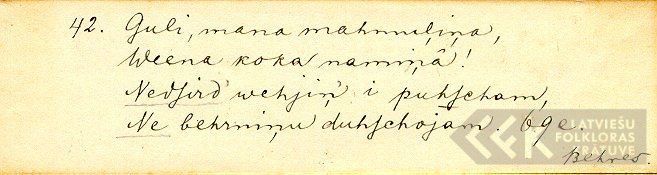 42. Guli, mana mahmuliņa,
Weena koka namiņâ!
Nedſird wehjiņ' i puhſcham,
Ne behrniņu duhſchojam. 69e.
Behres.
LATVIEŠU
FOLKLORAS
KRĀTUVE